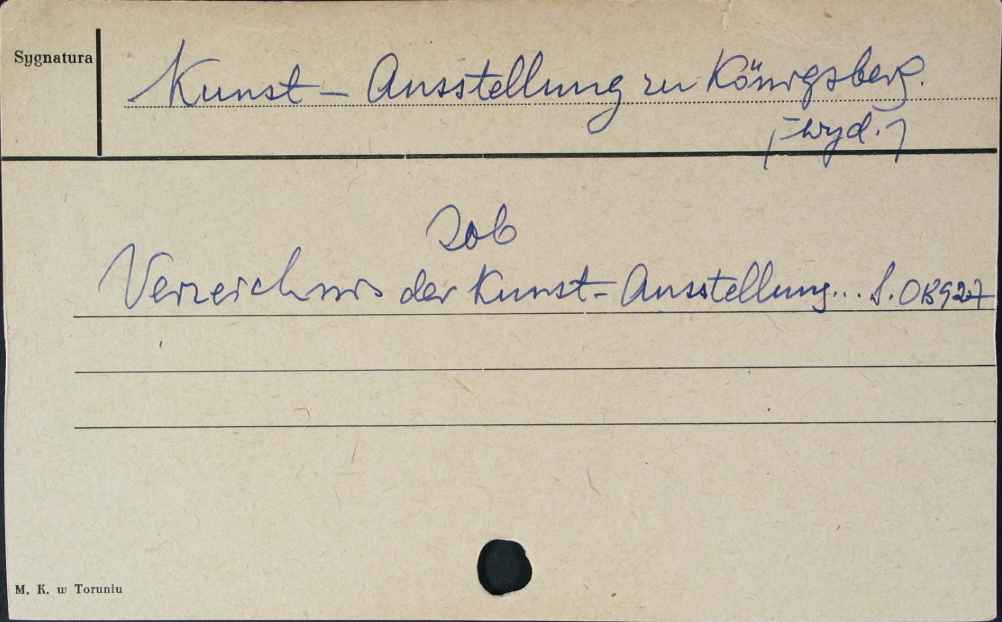 Sygnatura
Kunst-Ausstellung zu Königsberg.
[wyd.]
Zob
Verzeichnis der Kunst-Ausstellung... S. OB927
M. K. w Toruniu